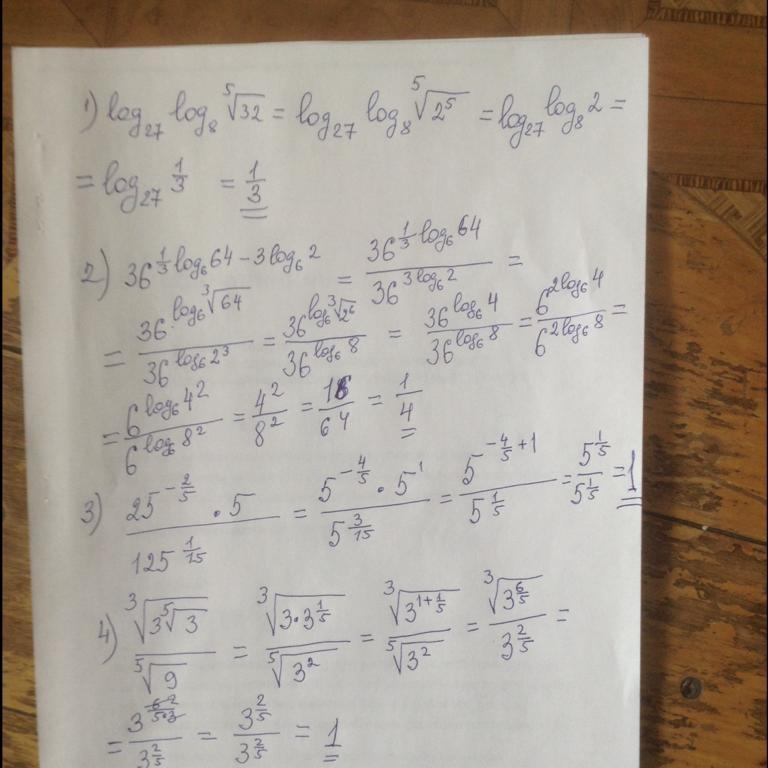 1) log₂₇ log₈ ⁵√32 = log₂₇ log₈ ⁵√(2⁵) = log₂₇ log₈ 2 =
= log₂₇ 1/3 = 1/3
2) 36^(1/3 log₆ 64 − 3 log₆ 2) = 36^(1/3 log₆ 64) / 36^(3 log₆ 2) =
= 36^(log₆ ³√64) / 36^(log₆ 2³) = 36^(log₆ ³√(2⁶)) / 36^(log₆ 8) = 36^(log₆ 4) / 36^(log₆ 8) = 6^(2 log₆ 4) / 6^(2 log₆ 8) =
= 6^(log₆ 4²) / 6^(log₆ 8²) = 4² / 8² = 16/64 = 1/4
3) 25^(−2/5) · 5 / 125^(1/15) = 5^(−4/5) · 5¹ / 5^(3/15) = 5^(−4/5 + 1) / 5^(1/5) = 5^(1/5) / 5^(1/5) = 1
4) ³√(3 ⁵√3) / ⁵√9 = ³√(3·3^(1/5)) / ⁵√(3²) = ³√(3^(1+1/5)) / ⁵√(3²) = ³√(3^(6/5)) / 3^(2/5) =
= 3^(6 2/5·3) / 3^(2/5) = 3^(2/5) / 3^(2/5) = 1